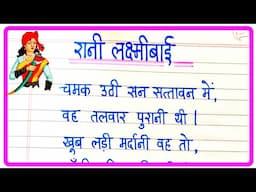 रानी लक्ष्मीबाई
चमक उठी सन सत्तावन में,
वह तलवार पुरानी थी।
खूब लड़ी मर्दानी वह तो,